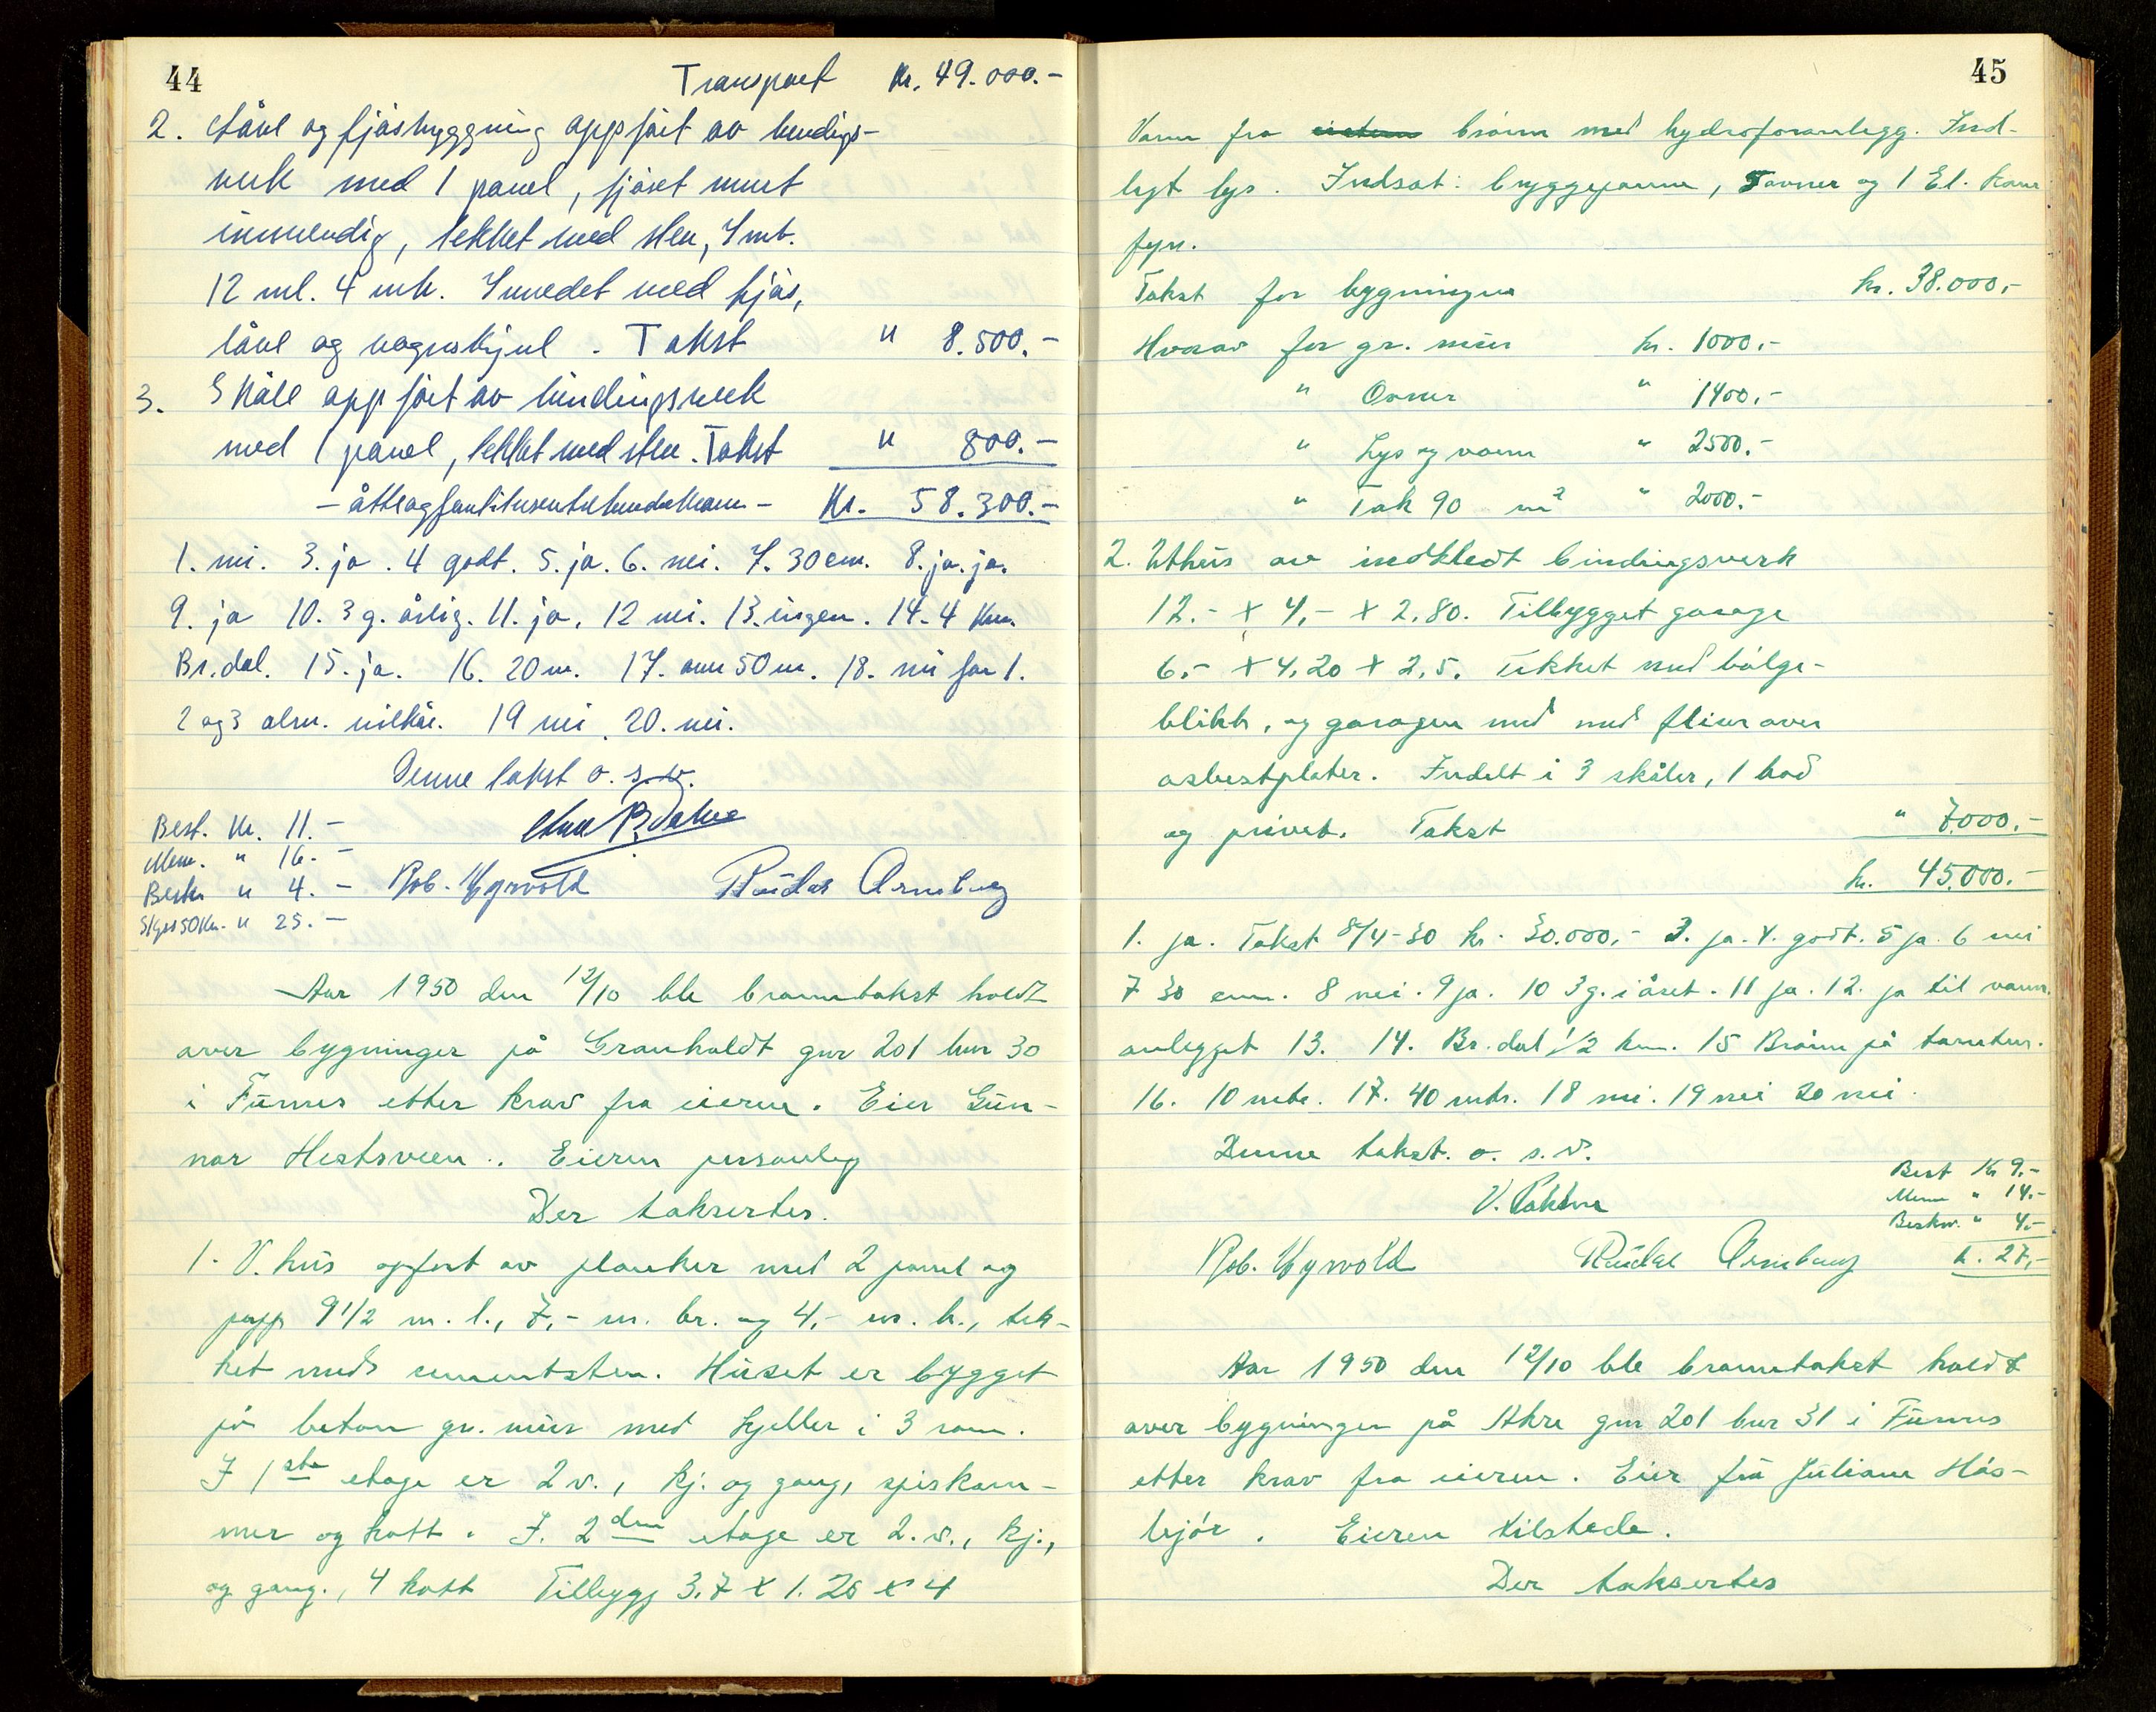 44
Transport Kr. 49.000.-
2. Låve og fjøsbyggning oppført av bindings-
verk med 1 panel, fjøset murt
innvendig, tekket med sten, 7 mb.
12 ml. 4 mh. Innredet med fjøs,
låve og vognskjul. Takst " 8.500.-
3. Skåle oppført av bindingsverk
med 1 panel, tekket med sten. Takst " 800.-
- åtteogfemtitusentrehundrekroner - Kr. 58.300.-
1. nei. 3. ja. 4 godt. 5. ja. 6. nei. 7. 30 cm. 8. ja. ja.
9. ja 10. 3 g. årlig. 11. ja. 12 nei. 13. ingen. 14. 4 km.
Br.dal. 15. ja. 16. 20 m. 17. over 50 m. 18. nei for 1.
2 og 3 alm. vilkår. 19 nei. 20. nei.
Denne takst o. s. v.
Best. Kr. 11.-
Menn. " 16.-
Beskr. " 4.- Rob. Myrvold Reidar Arneberg
Skyss 50 km. " 25.-
Aar 1950 den 12/10 ble branntakst holdt
over bygninger på Granholdt gnr 201 bnr 30
i Furnes etter krav fra eieren. Eier Gun-
nar Hestsveen. Eieren personlig
Der taksertes.
1. V.hus opført av planker med 2 panel og
papp 9 1/2 m. l., 7,- m. br. og 4,- m. h., tek-
ket med sementsten. Huset er bygget
på beton gr. mur med kjeller i 3 rom.
I 1ste etage er 2 v., kj. og gang, spiskam-
mer og kott. I. 2den etage er 2. v., kj.,
og gang., 4 kott Tilbygg 3.7 x 1.20 x 4
45
Vann fra brønn med hydroforanlegg. Ind-
lagt lys. Indsat: bryggepanne, 5 ovner og 1 El. kam
fyr.
Takst for bygningen kr. 38.000,-
Hvorav for gr. mur kr. 1000.-
" Ovner " 1400.-
" Lys og vann " 2500.-
" Tak 90 m2 " 2000.-
2. Uthus av indkledt bindingsverk
12.- x 4,- x 2.80. Tilbygget garage
6.- x 4.20 x 2.5. Tekket med bølge-
blikk, og garagen med med fliser over
asbestplater. Indelt i 3 skåler, 1 bod
og privet. Takst " 7.000.-
kr. 45.000.-
1. ja. Takst 8/4-30 kr. 30.000,- 3. ja. 4. godt. 5 ja. 6 nei
7 30 cm. 8 nei. 9 ja. 10 3 g. i året. 11 ja. 12. ja til vann-
anlegget 13. 14. Br.dal 1/2 km. 15 Brønn på tomten.
16. 10 mtr. 17. 40 mtr. 18 nei. 19 nei 20 nei.
Denne takst. o. s. v.
Best Kr 9.-
Menn " 14.-
Beskr. " 4.-
Rob. Myrvold Reidar Arneberg k. 27,-
Aar 1950 den 12/10 ble branntakst holdt
over bygningen på Akre gnr 201 bnr 31 i Furnes
etter krav fra eieren. Eier fru Juliane Hås-
bjør. Eieren tilstede.
Der taksertes